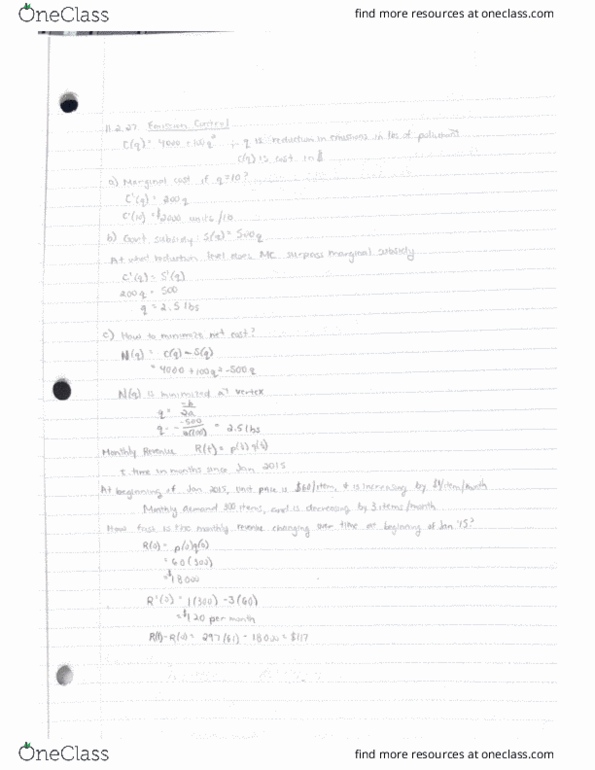 OneClass
find more resources at oneclass.com
11.2.27 Emission Control
C(q) = 4000 + 100q² :- q is reduction in emissions in lbs of pollutant
C(q) is cost in $
a) Marginal cost if q=10?
C'(q) = 200q
C'(10) = $2000 units/10
b) Govt. subsidy: S(q) = 500q
At what reduction level does MC surpass marginal subsidy
C'(q) = S'(q)
200q = 500
q = 2.5 lbs
c) How to minimize net cost?
N(q) = C(q) - S(q)
= 4000 + 100q² - 500q
N(q) is minimized at vertex
q = -b/2a
q = - -500/2(100) = 2.5 lbs
Monthly Revenue R(t) = p(t) q(t)
time in months since Jan 2015
At beginning of Jan 2015, unit price is $60/item, & is increasing by $1/item/month
Monthly demand 300 items, and is decreasing by 3 items/month
How fast is the monthly revenue changing over time at beginning of Jan '15?
R(0) = p(0)q(0)
= 60(300)
= $18000
R'(0) = 1(300) - 3(60)
= $120 per month
R(1) - R(0) = 297(61) - 18000 = $117
OneClass
find more resources at oneclass.com